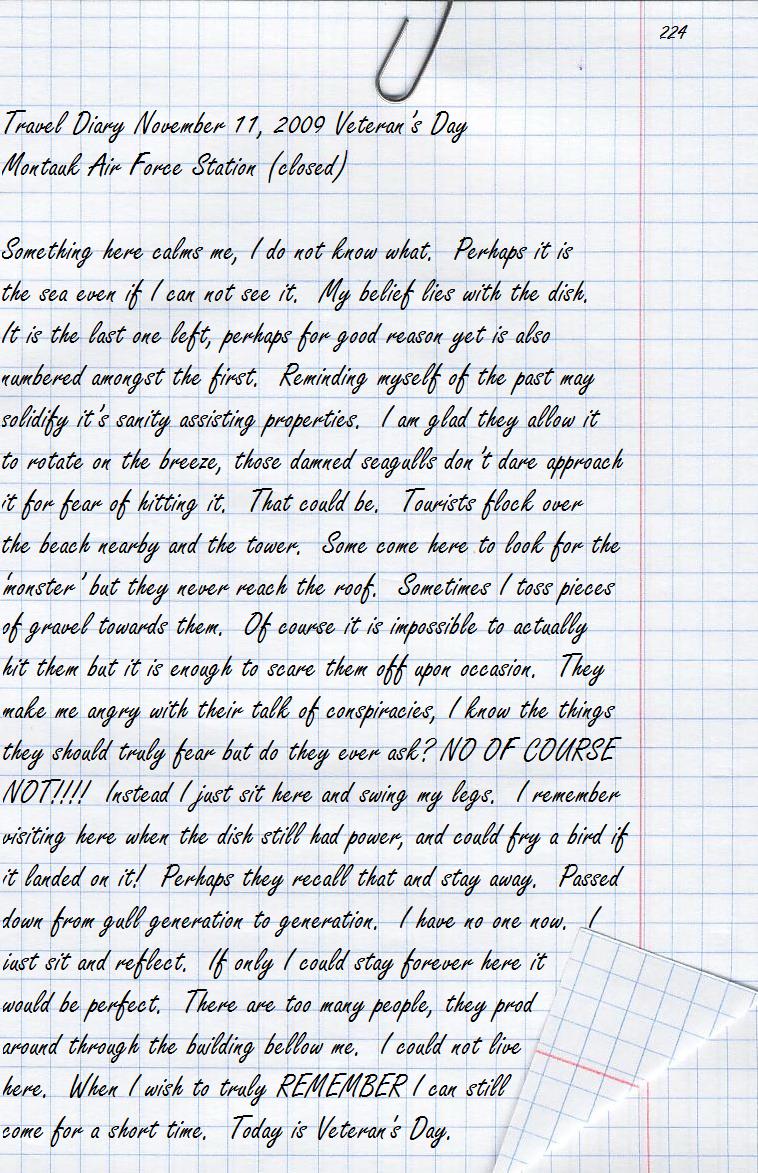 224
Travel Diary November 11, 2009 Veteran's Day
Montauk Air Force Station (closed)
Something here calms me, I do not know what. Perhaps it is
the sea even if I can not see it. My belief lies with the dish.
It is the last one left, perhaps for good reason yet is also
numbered amongst the first. Reminding myself of the past may
solidify it's sanity assisting properties. I am glad they allow it
to rotate on the breeze, those damned seagulls don't dare approach
it for fear of hitting it. That could be. Tourists flock over
the beach nearby and the tower. Some come here to look for the
'monster' but they never reach the roof. Sometimes I toss pieces
of gravel towards them. Of course it is impossible to actually
hit them but it is enough to scare them off upon occasion. They
make me angry with their talk of conspiracies, I know the things
they should truly fear but do they ever ask? NO OF COURSE
NOT!!!! Instead I just sit here and swing my legs. I remember
visiting here when the dish still had power, and could fry a bird if
it landed on it! Perhaps they recall that and stay away. Passed
down from gull generation to generation. I have no one now. I
just sit and reflect. If only I could stay forever here it
would be perfect. There are too many people, they prod
around through the building bellow me. I could not live
here. When I wish to truly REMEMBER I can still
come for a short time. Today is Veteran's Day.